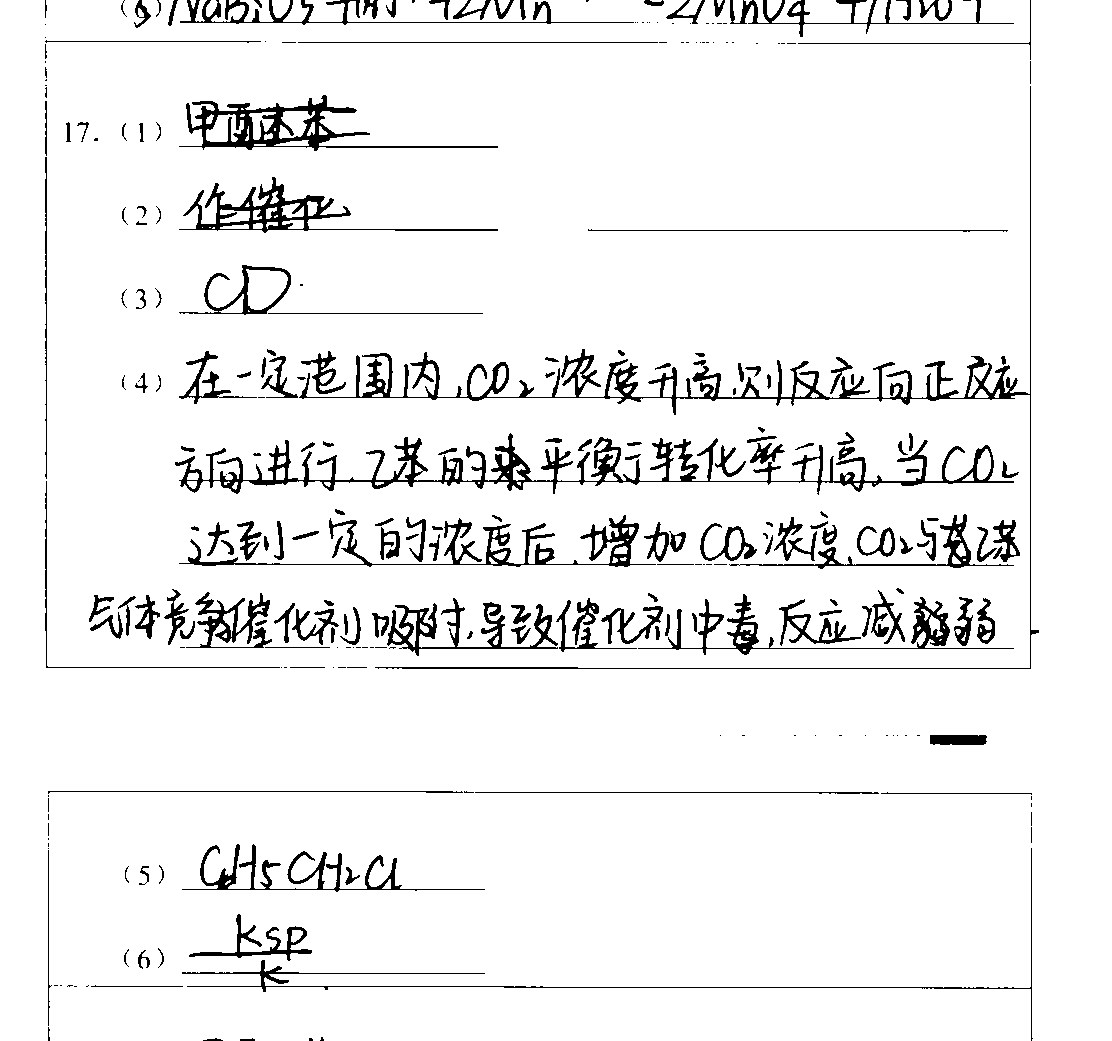 17. (1)
(2)
(3) CD
(4) 在一定范围内,CO₂浓度升高,则反应向正反应
方向进行,乙苯的平衡转化率升高,当CO₂
达到一定的浓度后,增加CO₂浓度,CO₂与乙苯
气体竞争催化剂吸附,导致催化剂中毒,反应减弱
(5) C₆H₅CH₂Cl
(6) Ksp
K